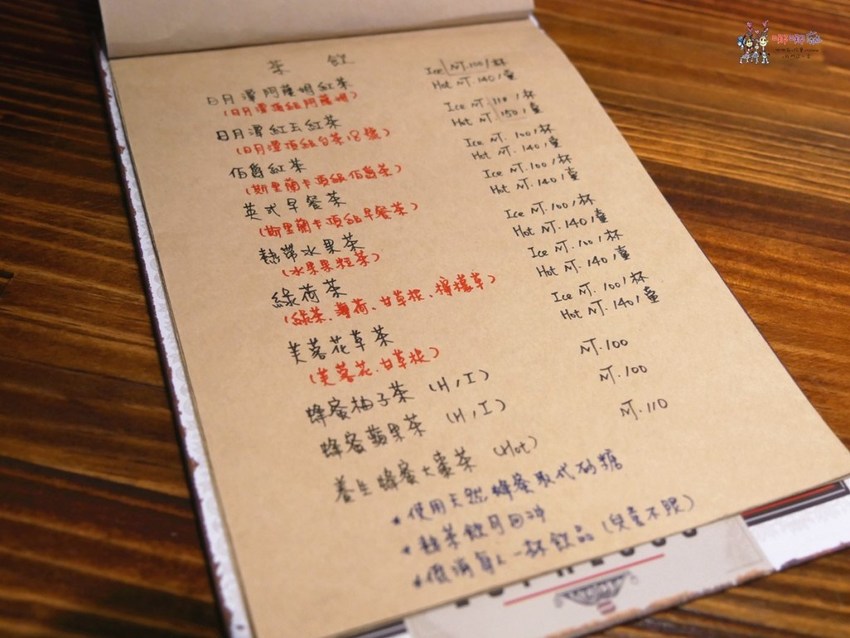 茶 飲
日月潭阿薩姆紅茶 Ice NT.100/杯
(日月潭頂級阿薩姆) Hot NT.140/壺
日月潭紅玉紅茶 Ice NT.110/杯
(日月潭頂級台茶18號) Hot NT.150/壺
伯爵紅茶 Ice NT.100/杯
(斯里蘭卡頂級伯爵茶) Hot NT.140/壺
英式早餐茶 Ice NT.100/杯
(斯里蘭卡頂級早餐茶) Hot NT.140/壺
熱帶水果茶 Ice NT.100/杯
(水果果粒茶) Hot NT.140/壺
綠荷茶 Ice NT.100/杯
(綠茶、薄荷、甘草根、檸檬草) Hot NT.140/壺
芙蓉花草茶 Ice NT.100/杯
(芙蓉花、甘草根) Hot NT.140/壺
蜂蜜柚子茶 (H,I) NT.100
蜂蜜蘋果茶 (H,I) NT.100
養生蜂蜜大棗茶 (Hot) NT.110
*使用天然蜂蜜取代砂糖
*熱茶飲可回沖
*低消每人一杯飲品(兒童不限)